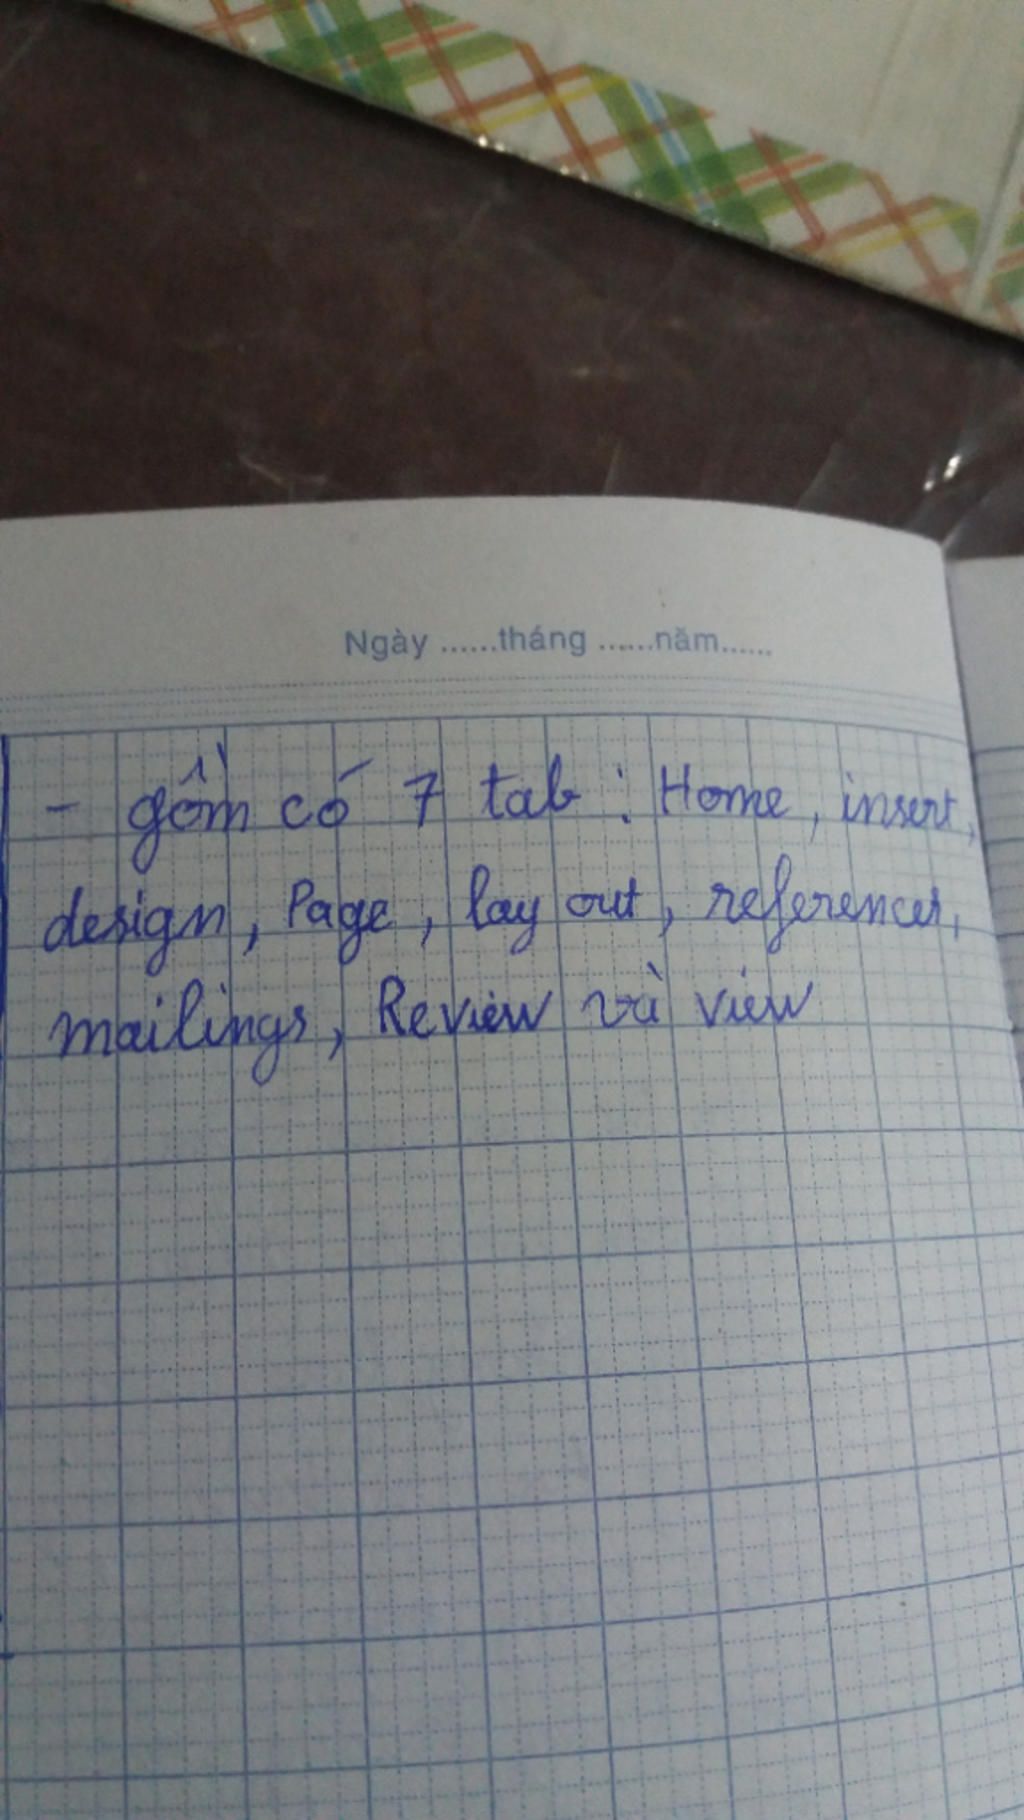 Ngày ......tháng ......năm......
- gồm có 7 tab : Home, insert,
design, Page, lay out, references,
mailings, Review và view